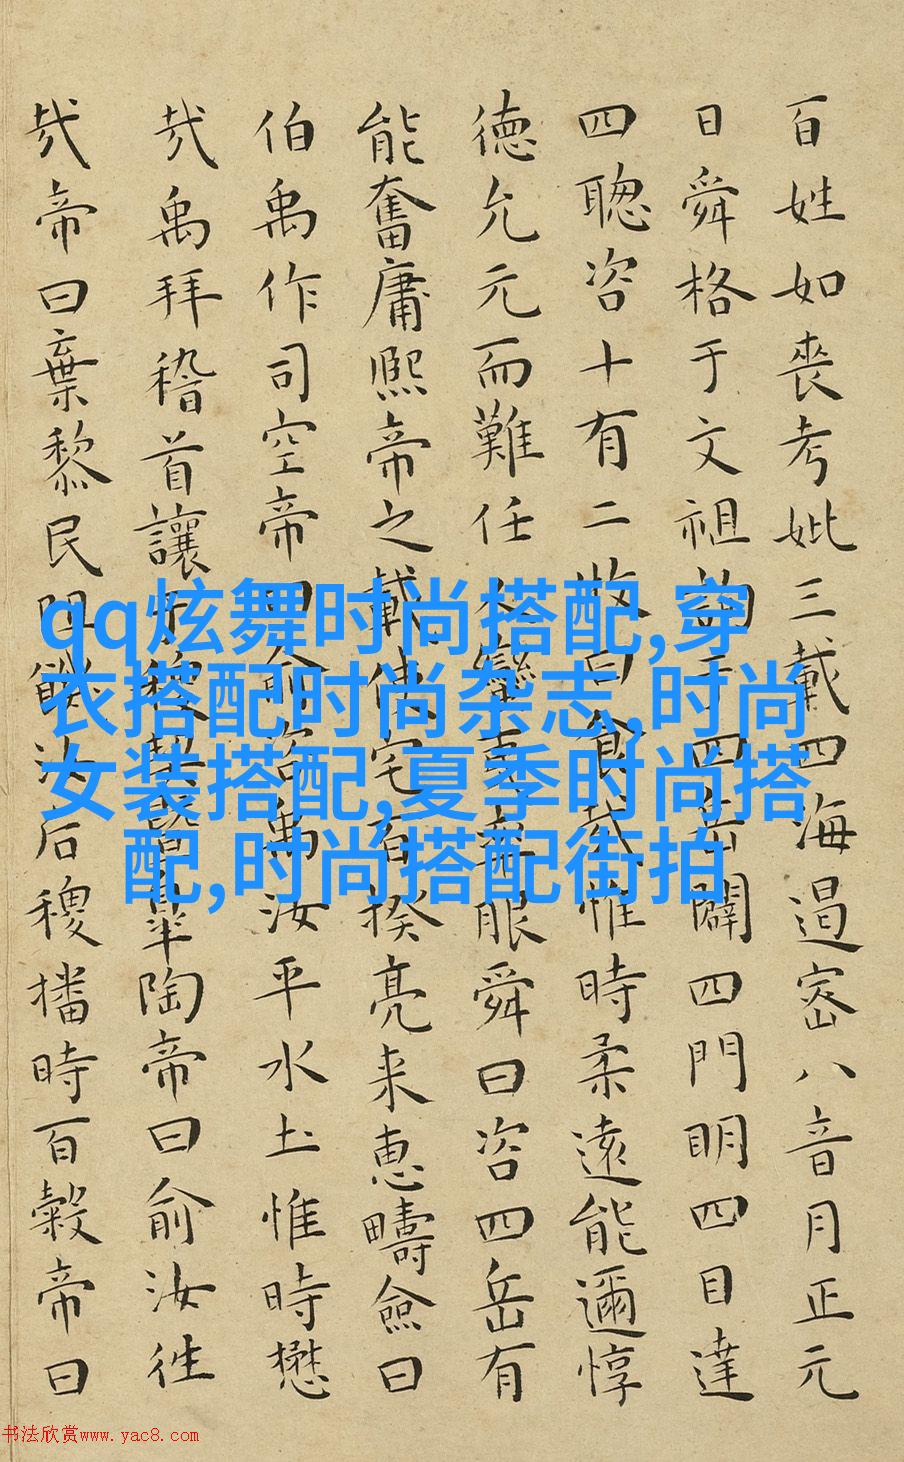 百姓如喪考妣三載四海遏密八音月正元
日舜格于文祖詢于四岳闢四門明四目達
四聰咨十有二牧曰食哉惟時柔遠能邇惇
德允元而難任人蠻夷率服舜曰咨四岳有
能奮庸熙帝之載使宅百揆亮来惠疇僉曰
伯禹作司空帝曰俞咨禹汝平水土惟時懋
哉禹拜稽首讓于稷契暨皐陶帝曰俞汝往
哉帝曰棄黎民阻飢汝后稷播時百穀帝曰
qq炫舞时尚搭配,穿
衣搭配时尚杂志,时尚
女装搭配,夏季时尚搭
配,时尚搭配街拍
书法欣赏www.yac8.com